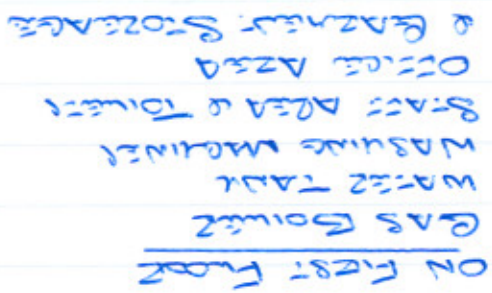 ON FIRST FLOOR
GAS BOILER
WATER TANK
WASHING MACHINES
STAFF AREA & TOILETS
OFFICE AREA
& GARMENT STORAGE